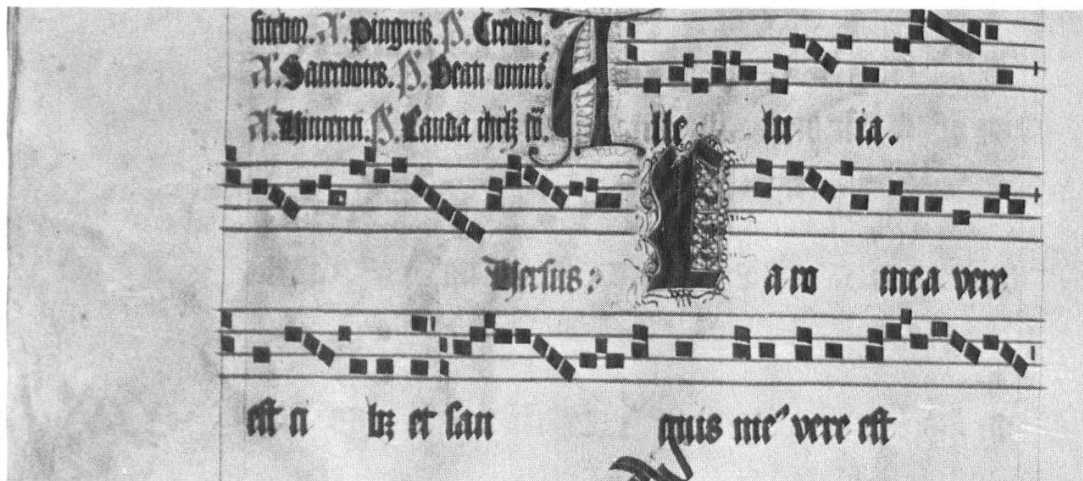 A. pinguis. ps. Credidi.
A. Sacerdotes. ps. Beati omnes
A. ps. Lauda
Alle lu ia.
Versus: Caro mea vere
est ci bz et san guis me⁹ vere est